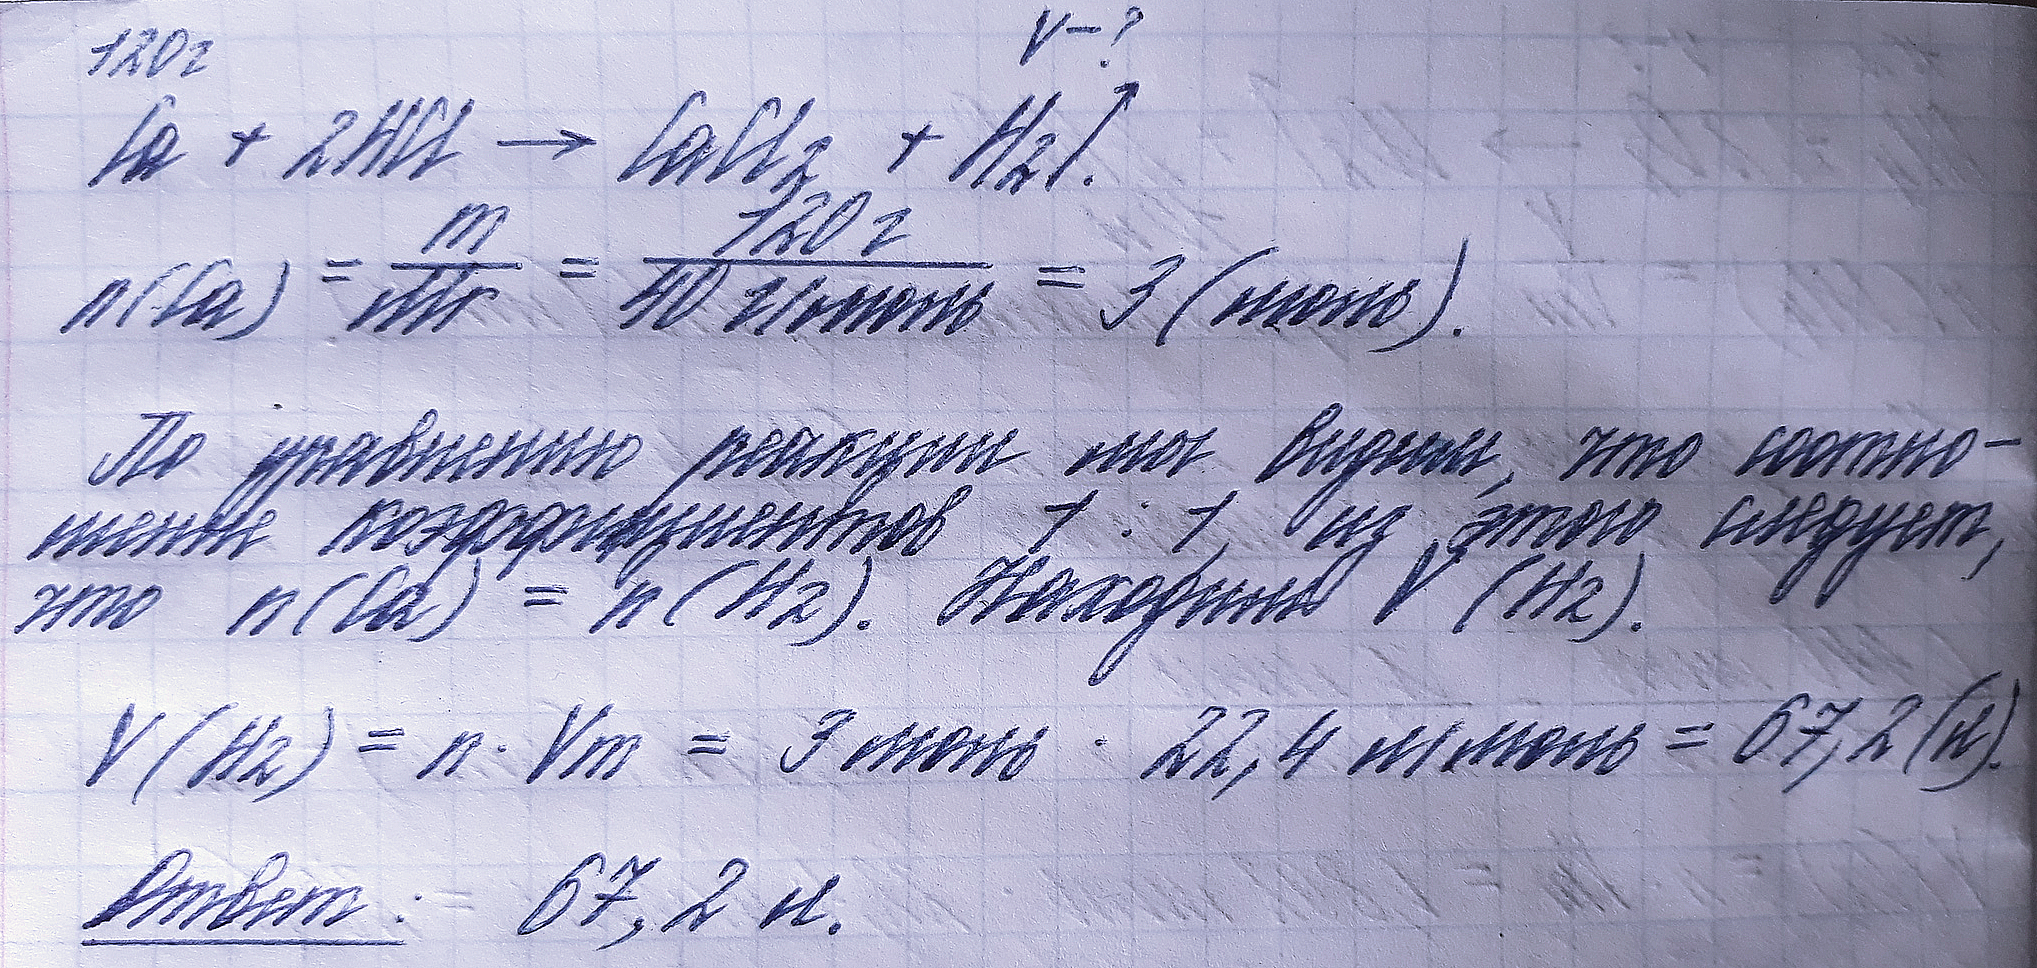 120г V-?
Ca + 2HCl → CaCl2 + H2↑.
n(Ca) = m/Mr = 120 г/40 г/моль = 3 (моль).
По уравнению реакции мы видим, что соотно-
шение коэффициентов 1 : 1, из этого следует,
что n(Ca) = n(H2). Находим V (H2).
V(H2) = n · Vm = 3 моль · 22,4 л/моль = 67,2 (л).
Ответ: 67,2 л.